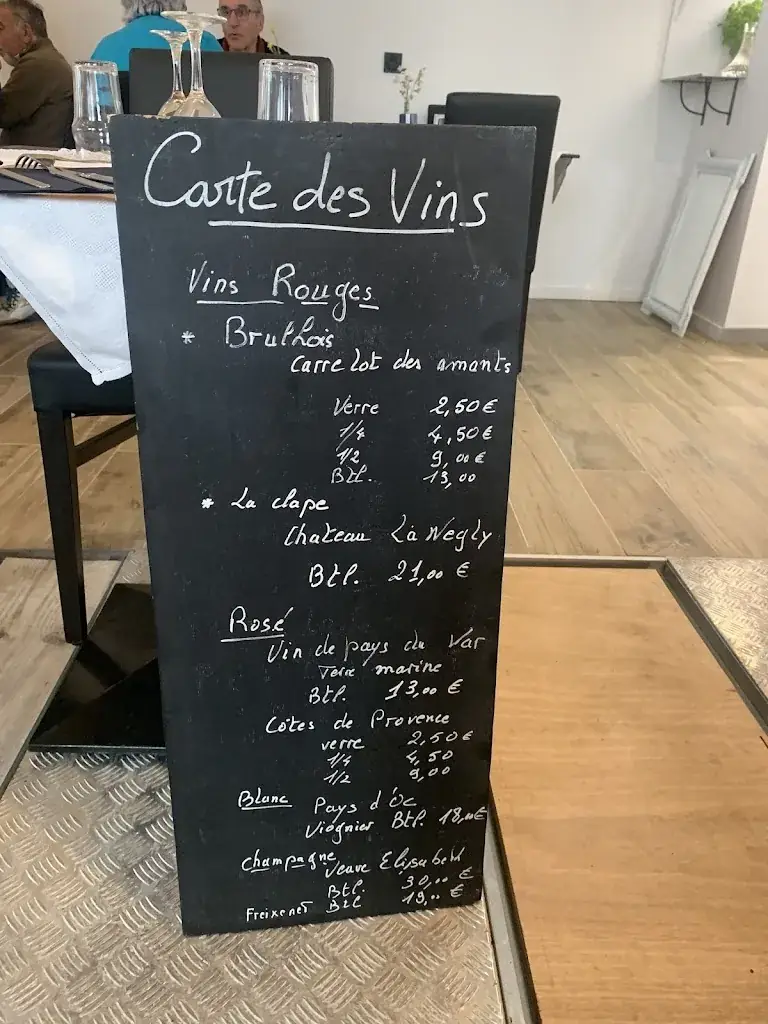 Carte des Vins
Vins Rouges
* Brulhois
Carrelot des amants
Verre 2,50 €
1/4 4,50 €
1/2 9,00 €
Btl. 13,00
* La clape
Chateau La Negly
Btl. 21,00 €
Rosé
Vin de pays du Var
Terre marine
Btl. 13,00 €
Côtes de Provence
verre 2,50 €
1/4 4,50
1/2 9,00
Blanc Pays d'Oc
Viognier Btl. 18,00€
Champagne Veuve Elisabeth
Btl. 30,00 €
Freixenet Btl 19,00 €